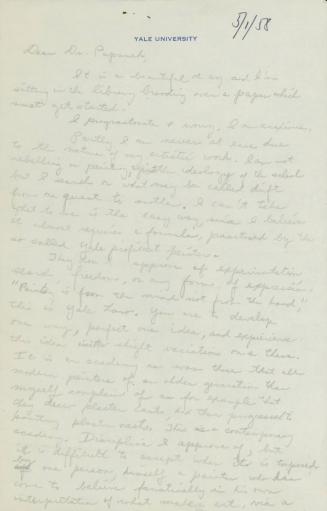 5/1/58
YALE UNIVERSITY
Dear Dr. Papanek,
It is a beautiful day and I'm
sitting in the library brooding over a paper which
must get started.
I procrastinate & worry. I'm anxious.
Partly I am never at ease due
to the nature of my artistic work. I am not
rebelling in painting, the ideology of the school
but I search or what may be called drift
from one quest to another. I can't take
what to me is the easy way since I believe
it almost requires a formula, practised by the
so called Yale proficient painter.
They don't approve of experimentation
freedom, or any forms of expression.
"Painting is from the mind not from the hand,"
this is Yale Law. You are to develop
one way, perfect one idea, and experience
this idea with slight variations on a theme.
It is an academy as was those that all
modern painters of an older generation
complain of as for example that
they drew plaster casts, and then progressed to
painting plaster casts. This is a contemporary
academy. Discipline I approve of, but
it is difficult to accept when it is imposed
by one person, himself a painter who has
come to believe fanatically in his own
interpretation of what makes art, via a